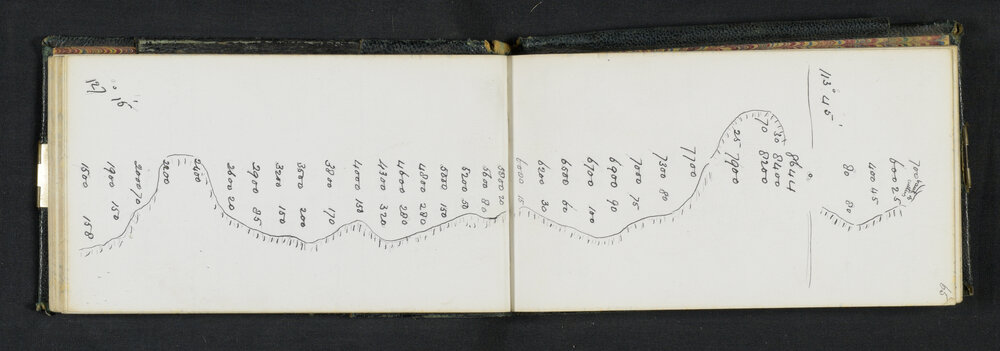 65
700
600 25
400 45
80 80
0
113° 45'
8644
8400 30
8200 70
7900 25
7700
7300 80
7000 75
6900 90
6700 100
6500 60
6200 30
6000 15
5800 20
5600 80
5200 50
5000 150
4800 280
4600 280
4300 320
4000 153
3800 170
3500 200
3200 150
2900 85
2600 20
2400
2200
2000 70
1900 150
1500 158